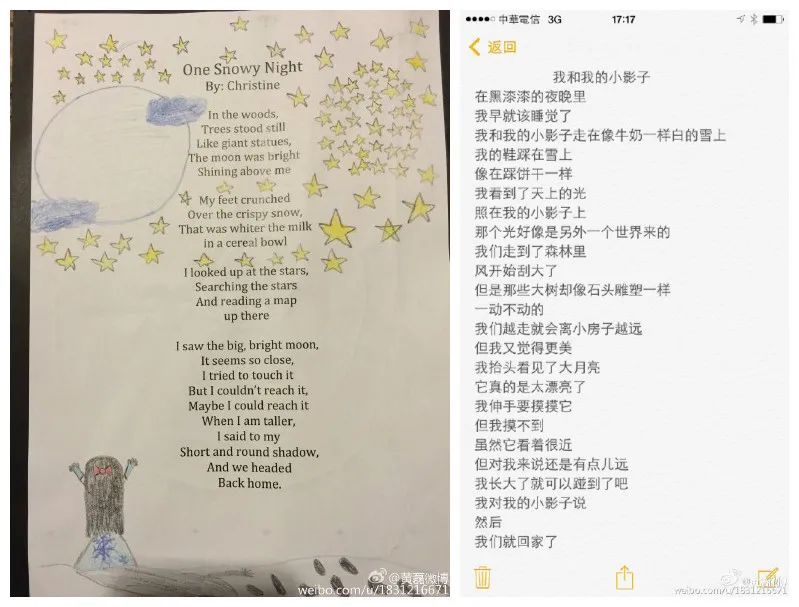 One Snowy Night
By: Christine
In the woods,
Trees stood still
Like giant statues,
The moon was bright
Shining above me
My feet crunched
Over the crispy snow,
That was whiter the milk
in a cereal bowl
I looked up at the stars,
Searching the stars
And reading a map
up there
I saw the big, bright moon,
It seems so close,
I tried to touch it
But I couldn't reach it,
Maybe I could reach it
When I am taller,
I said to my
Short and round shadow,
And we headed
Back home.
@黄磊微博
weibo.com/u/1831216671
中華電信 3G 17:17
返回
我和我的小影子
在黑漆漆的夜晚里
我早就该睡觉了
我和我的小影子走在像牛奶一样白的雪上
我的鞋踩在雪上
像在踩饼干一样
我看到了天上的光
照在我的小影子上
那个光好像是另外一个世界来的
我们走到了森林里
风开始刮大了
但是那些大树却像石头雕塑一样
一动不动的
我们越走就会离小房子越远
但我又觉得更美
我抬头看见了大月亮
它真的是太漂亮了
我伸手要摸摸它
但我摸不到
虽然它看着很近
但对我来说还是有点儿远
我长大了就可以碰到了吧
我对我的小影子说
然后
我们就回家了
weibo.com/u/1831216671